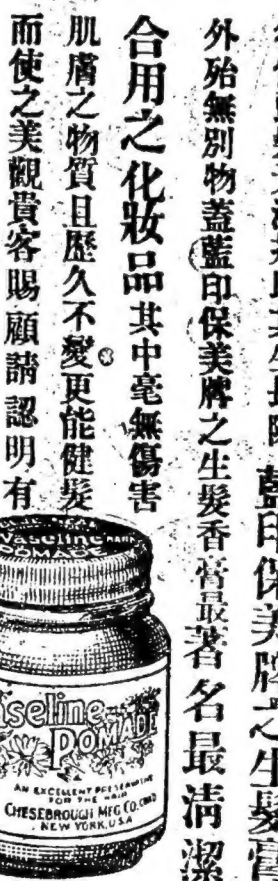 藍印保美牌之生髮膏
外殆無別物蓋藍印保美牌之生髮香膏最著名最清潔
合用之化妝品其中毫無傷害
肌膚之物質且歷久不變更能健髮
而使之美觀貴客賜顧請認明有
Vaseline
POMADE
seline
POMADE
AN EXCELLENT PRESERVATIVE
FOR THE HAIR
CHESEBROUGH MFG CO.
NEW YORK, U.S.A